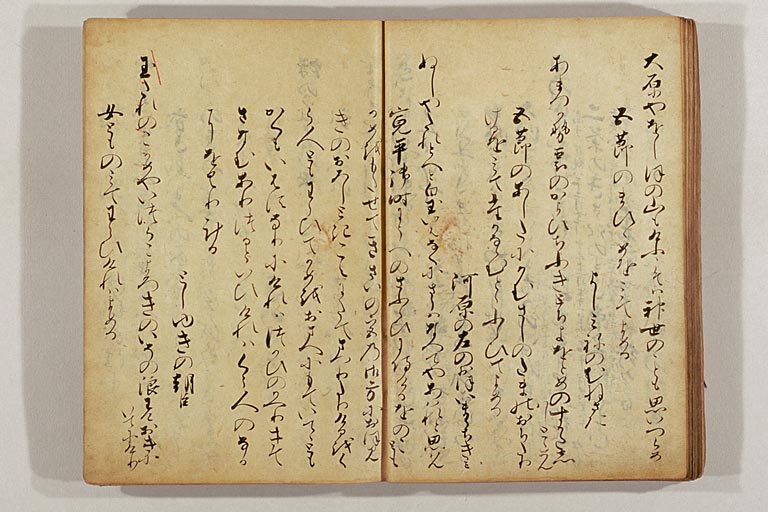 大原やをしほの山もけふこそは神世のことも思いつらめ
五節のまひひめをみてよめる
よしみねのむねさた
あまつかせ雲のかよひちふきとちよをとめのすかたし
はしとゝめん
五節のあしたにかむさしのたまのおちたり
けるをみてたかならむととふらひてよめる
河原の左のおほいまうちきみ
ぬしやたれとへと白玉いはなくにさらはなへてやあはれと思はん
寛平御時うへのさふらひに侍けるをのことも
かめをもたせてきさいの宮の御方におほみ
きのおろしときこえにたてまつりたりけるをく
ら人ともわらひてかめをおまへにもていてゝとも
かくもいはすなりにけれはつかひのかへりきて
さなむありつるといひけれはくら人のなか
にをくりける
としゆきの朝臣
玉たれのこかめやいつらこよろきのいその浪わけおきに
いてにけり
女ともの見てわらひけれはよめる